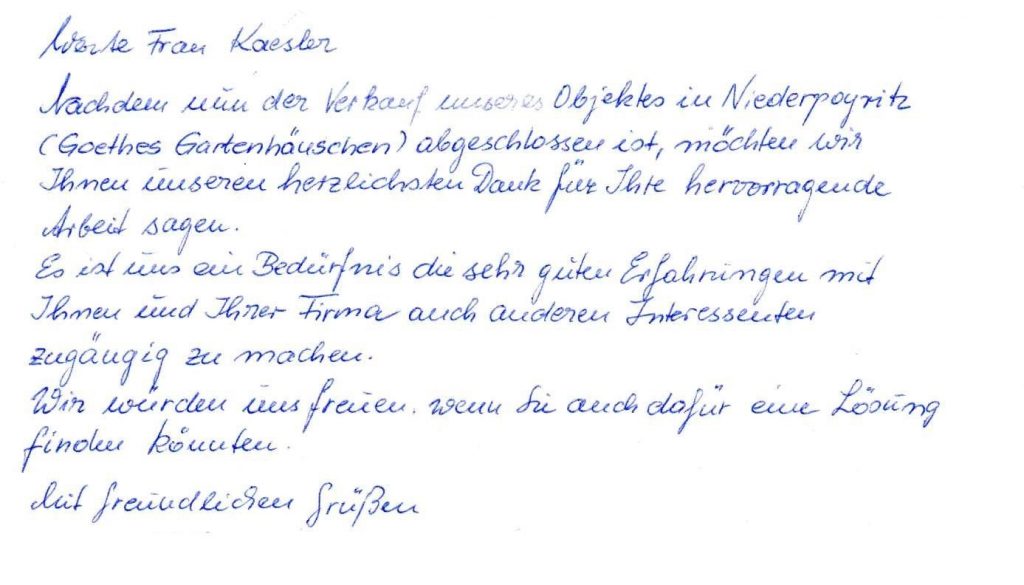 Werte Frau Kaesler
Nachdem nun der Verkauf unseres Objektes in Niederpoyritz
(Goethes Gartenhäuschen) abgeschlossen ist, möchten wir
Ihnen unseren herzlichsten Dank für Ihre hervorragende
Arbeit sagen.
Es ist uns ein Bedürfnis die sehr guten Erfahrungen mit
Ihnen und Ihrer Firma auch anderen Interessenten
zugängig zu machen.
Wir würden uns freuen. wenn Sie auch dafür eine Lösung
finden könnten.
Mit freundlichen Grüßen